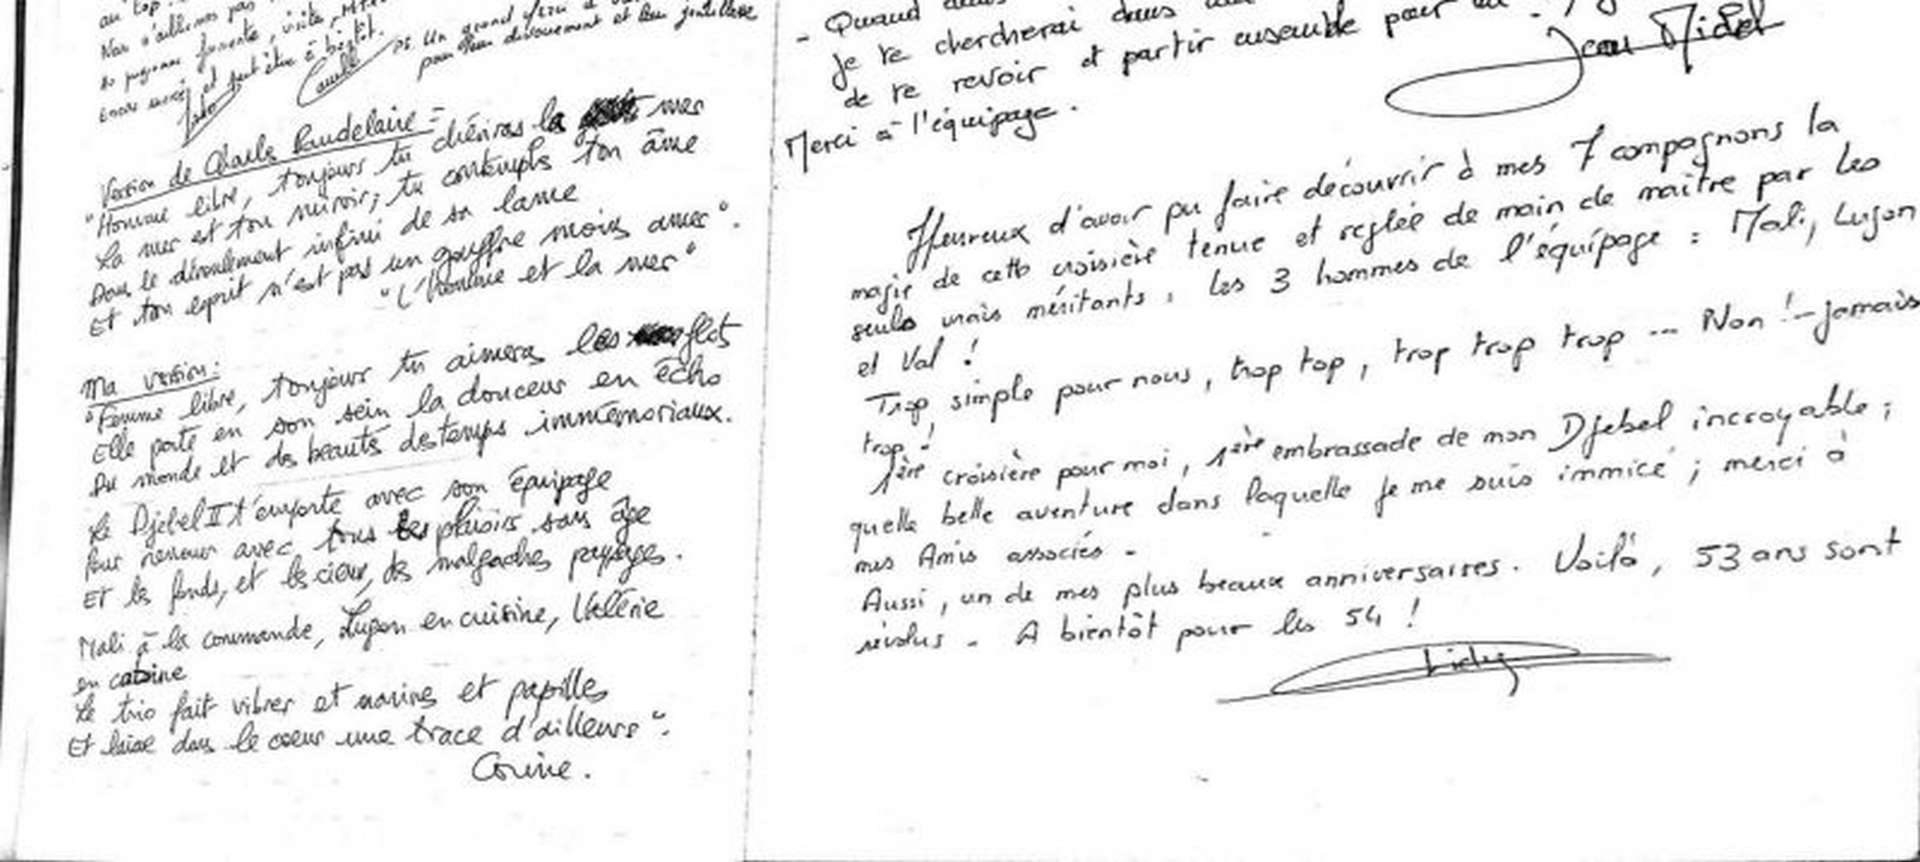 au top.
Nous n'oublierons pas
programme
encore merci et peut être à bientôt.
Camille
PS Un grand
pour leur dévouement et leur gentillesse
Version de Charles Baudelaire :
"Homme libre, toujours tu chériras la mer
La mer est ton miroir ; tu contemples ton âme
Dans le déroulement infini de sa lame
Et ton esprit n'est pas un gouffre moins amer".
"L'homme et la mer"
Ma version :
"Femme libre, toujours tu aimeras les flots
Elle porte en son sein la douceur en écho
Du monde et des beautés des temps immémoriaux.
Le Djebel II t'emporte avec son équipage
Pour renouer avec tous les plaisirs sans âge
Et les fonds, et les cieux, des malgaches paysages.
Mali à la commande, Lugon en cuisine, Valérie
en cabine
Le trio fait vibrer et narines et papilles
Et laisse dans le coeur une trace d'ailleurs".
Corine.
- Quand
je te chercherai dans
de te revoir et partir ensemble pour
Jean Midel
Merci à l'équipage.
Heureux d'avoir pu faire découvrir à mes 7 compagnons la
magie de cette croisière tenue et reglée de main de maître par les
seuls vrais méritants, les 3 hommes de l'équipage : Mali, Lugon
et Val !
Trop simple pour nous, trop top, trop trop trop --- Non ! - jamais
trop !
1ère croisière pour moi, 1ère embrassade de mon Djebel incroyable ;
quelle belle aventure dans laquelle je me suis immicé ; merci à
mes Amis associés -
Aussi, un de mes plus beaux anniversaires. Voilà, 53 ans sont
révolus - A bientôt pour les 54 !